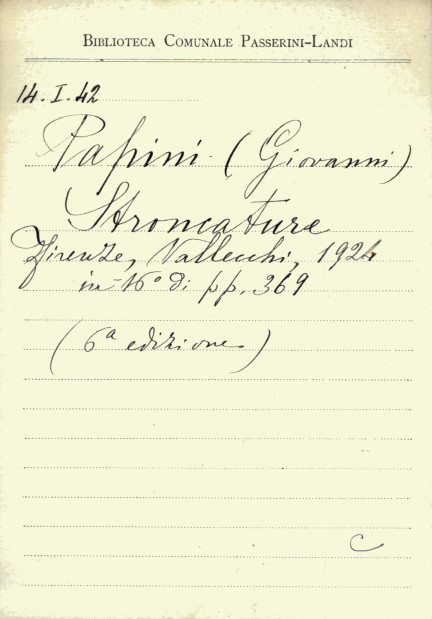 BIBLIOTECA COMUNALE PASSERINI-LANDI
14.I.42
Papini (Giovanni)
Stroncature
Firenze, Vallecchi, 1924
in-16° di pp. 369
(6ª edizione)
C